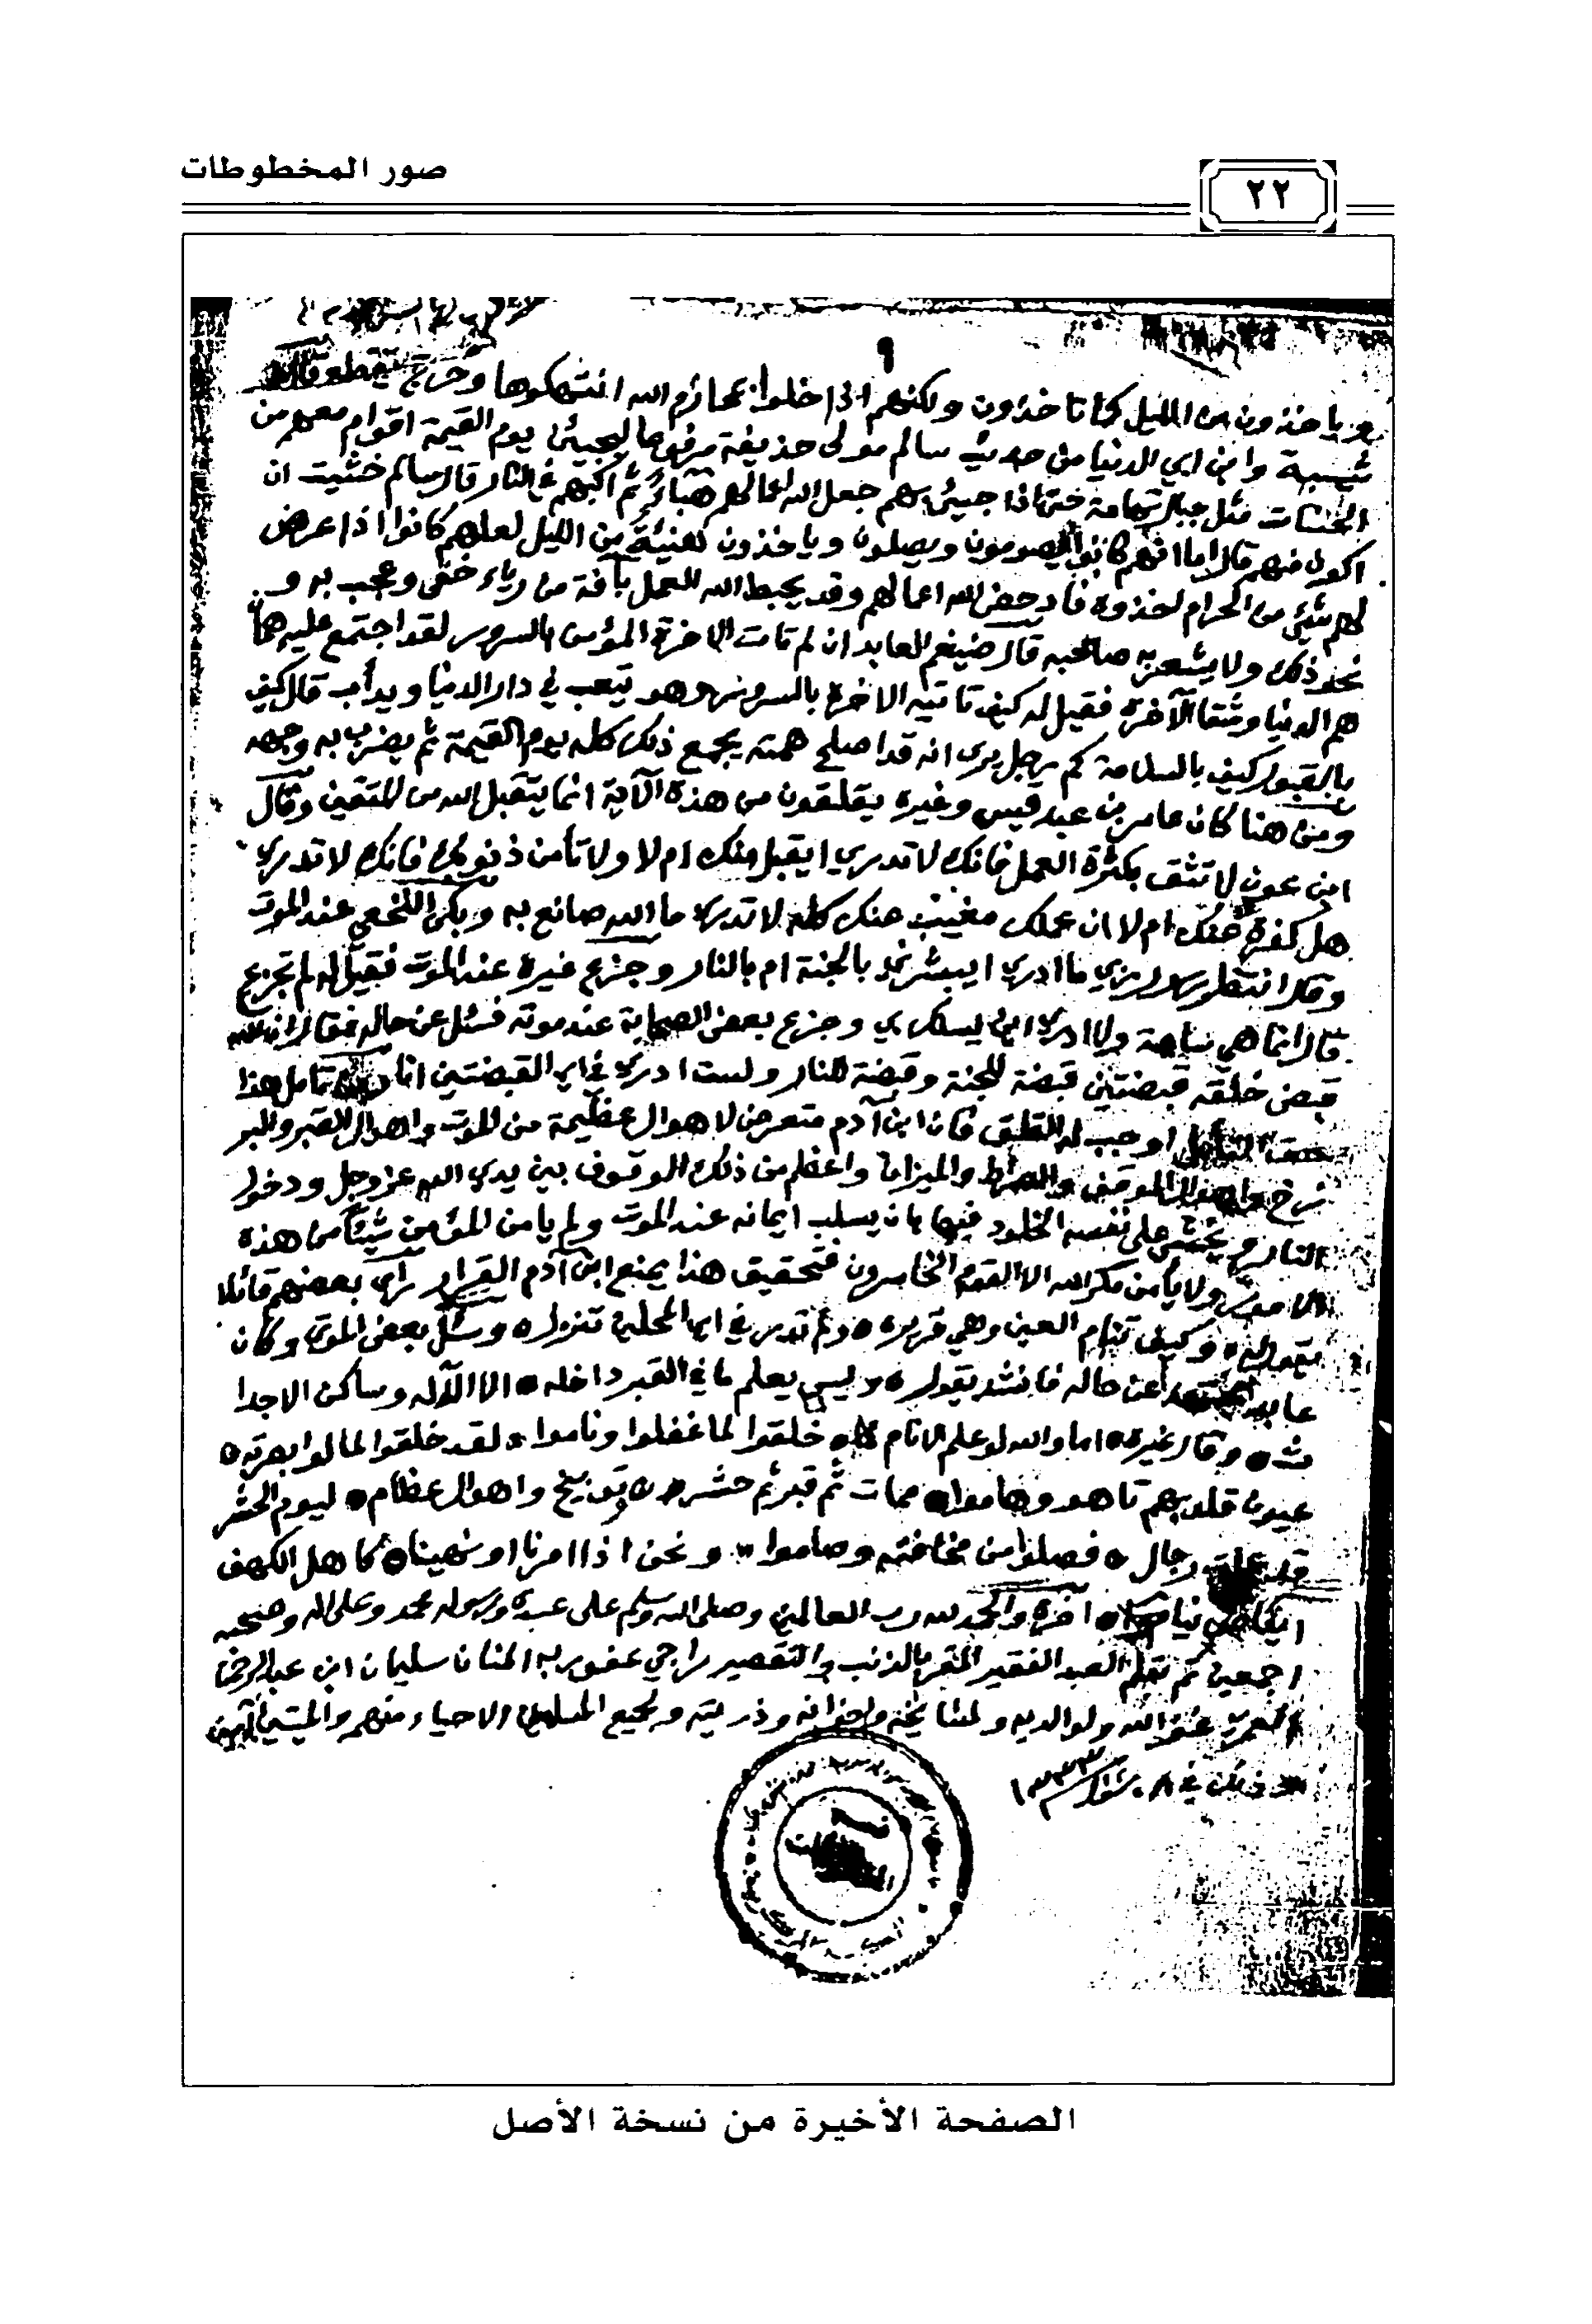 صور المخطوطات
٢٢
٩
وياخذون من الليل كما تاخذون ولكنهم اذا خلوا بمحارم الله انتهكوها وخرج
شيبة وابن ابي الدنيا من حديث سالم مولى حذيفة مرفوعا ليجيئن يوم القيمة اقوام معهم من
الحسنات مثل جبال تهامة حتى اذا جيئ بهم جعل الله اعمالهم هباء ثم اكبهم في النار قال سالم خشيت ان
اكون منهم قال اما انهم كانوا يصومون ويصلون وياخذون هنيئة من الليل لعلهم كانوا اذا عرض
لهم شيئ من الحرام اخذوه فادحض الله اعمالهم وقد يحبط الله العمل بآفة من رياء خفي وعجب به و
نحو ذلك ولا يشعر به صاحبه قال ضيغم العابد ان لم تات الاخرة المؤمن بالسرور لقد اجتمع عليه هماً
هم الدنيا وشقا الآخرة فقيل له كيف تاتيه الاخرة بالسرور وهو يتعب في دار الدنيا ويدأب قال كيف
بالقبول كيف بالسلامة كم رجل يرى انه قد اصلح همته يجمع ذلك كله يوم القيمة ثم يضرب به وجهه
ومن هنا كان عامر بن عبد قيس وغيره يقلقون من هذه الآية انما يتقبل الله من المتقين وقال
ابن عون لا تثق بكثرة العمل فانك لا تدري ايقبل منك ام لا ولا تأمن ذنوبك فانك لا تدري
هل كفرت عنك ام لا ان عملك مغيب عنك كله لا تدري ما الله صانع به وبكى النخعي عند الموت
وقال انتظر رسول ربي ما ادري ايبشرني بالجنة ام بالنار وجزع غيره عند الموت فقيل له لم تجزع
قال انما هي ساعة ولا ادري اين يسلك بي وجزع بعض الصحابة عند موته فسئل عن حاله فقال ان الله
قبض خلقه قبضتين قبضة للجنة وقبضة للنار ولست ادري في اي القبضتين انا ومن تأمل هذا
حق التأمل اوجب له القلق فان ابن آدم متعرض لاهوال عظيمة من الموت واهوال القبر والبر
زخ واهوال الموقف والصراط والميزان واعظم من ذلك الوقوف بين يدي الله عز وجل ودخول
النار ويخشى على نفسه الخلود فيها بان يسلب ايمانه عند الموت ولم يامن المؤمن شيئا من هذه
الامور ولا يأمن مكر الله الا القوم الخاسرون فتحقيق هذا يمنع ابن آدم القرار رأى بعضهم قائلا
يقول له وكيف تنام العين وهي قريرة ولم تدر في اي المحلين تنزل وسئل بعض الموتى وكان
عابدا مجتهدا عن حاله فانشد يقول وليس يعلم ما في القبر داخله الا الاله وساكن الاجدا
ث وقال غيره اما والله لو علم الانام لما خلقوا لما غفلوا وناموا لقد خلقوا لما لو ابصرته
عيون قلوبهم تاهو وهاموا ممات ثم قبر ثم حشر وتوبيخ واهوال عظام ليوم الحشر
قد عملت رجال فصلوا من مخافته وصاموا ونحن اذا امرنا او نهينا كاهل الكهف
ايقاظ نيام اخره والحمد لله رب العالمين وصلى الله وسلم على عبده ورسوله محمد وعلى اله وصحبه
اجمعين تم بقلم العبد الفقير المقر بالذنب والتقصير راجي عفو ربه المنان سليمان ابن عبد الرحمن
غفر الله له ولوالديه ولمشايخه واخوانه وذريته ولجميع المسلمين الاحياء منهم والميتين آمين
في ٨ شوال ١٣٣٣
الصفحة الأخيرة من نسخة الأصل